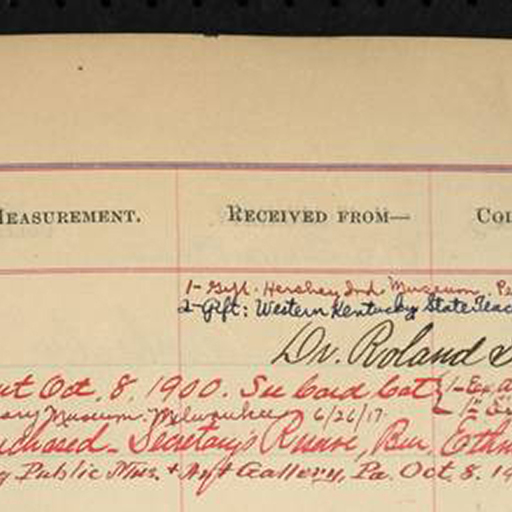 MEASUREMENT. RECEIVED FROM— COL
1-Gift. Hershey Ind. Museum, Pe
2-Gift: Western Kentucky State Teac
Dr. Roland S
Oct. 8, 1900. See Card Cat
Museum. Milwaukee 6/26/17.
Purchased- Secretary's Reserve, Bur. Ethn
Public Mus. + Art Gallery, Pa. Oct. 8. 19